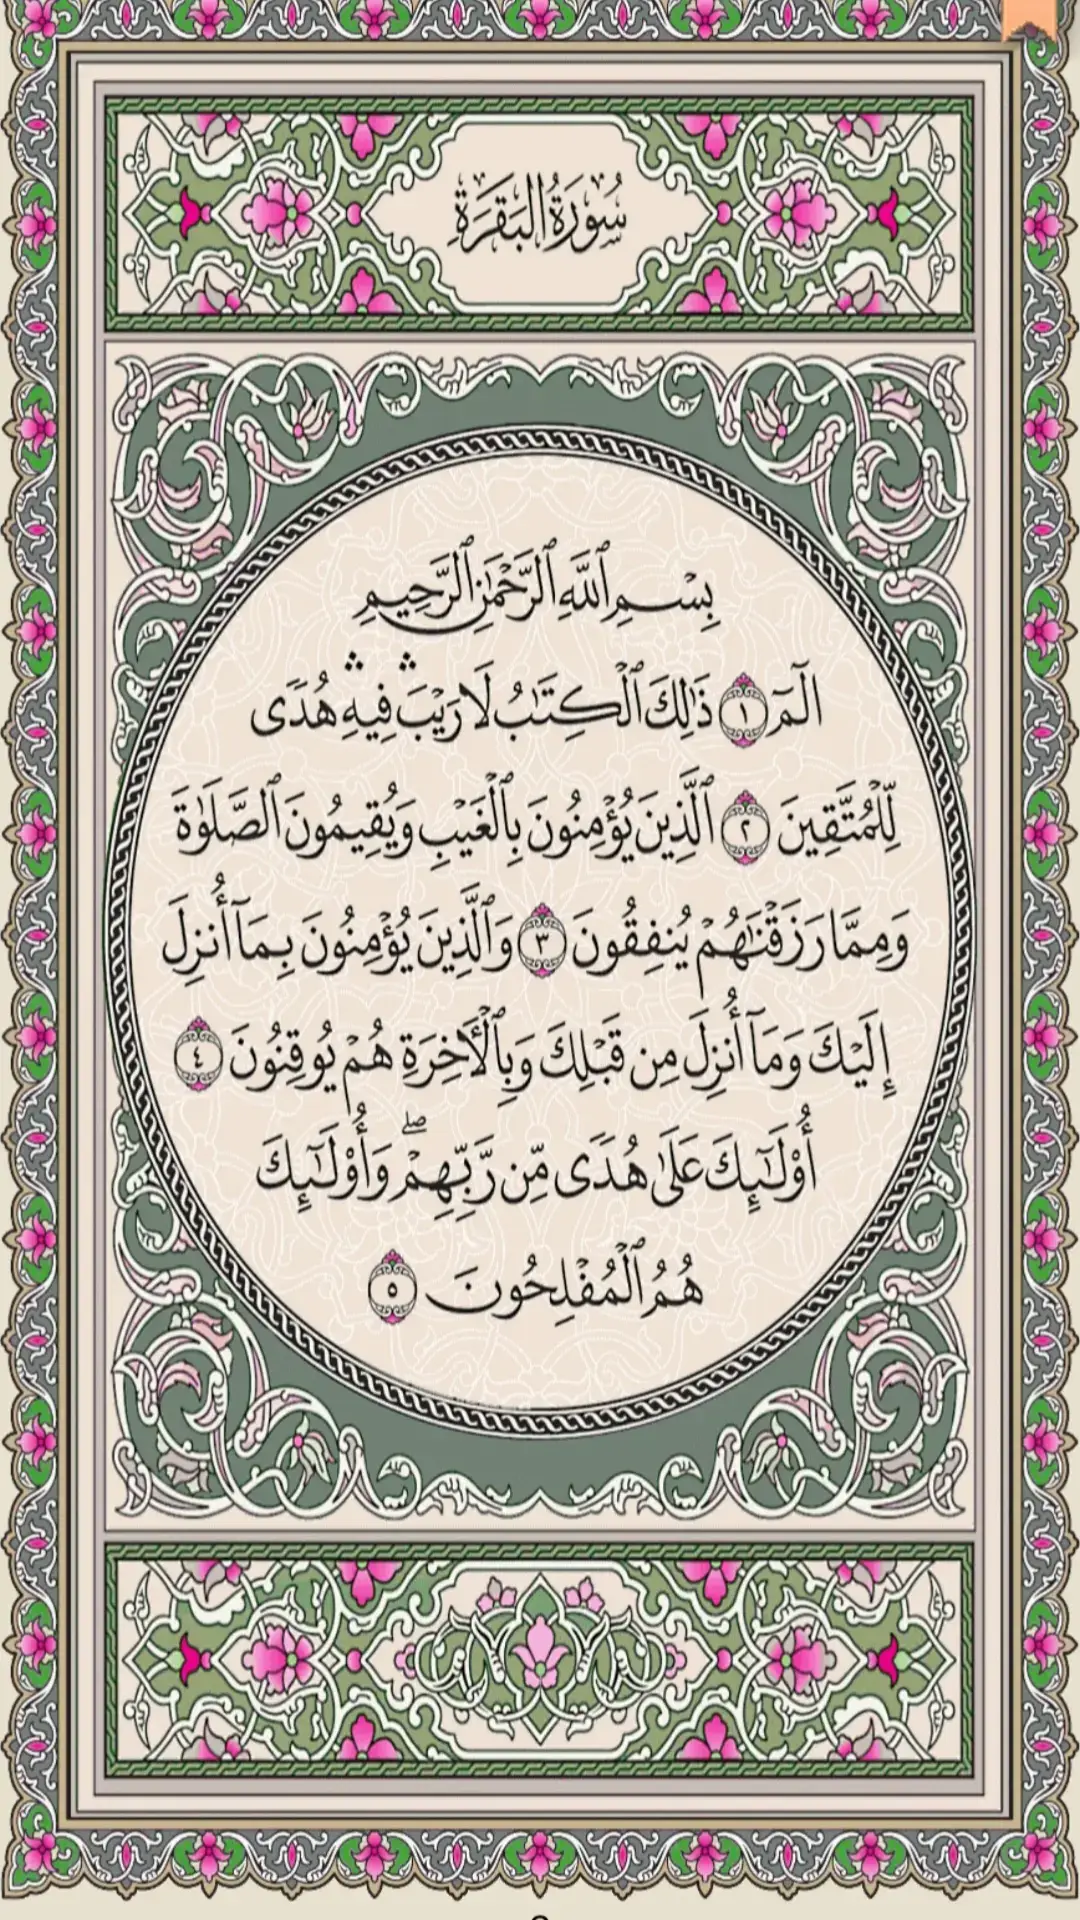 سُورَةُ البَقَرَةِ
بِسْمِ ٱللَّهِ ٱلرَّحْمَٰنِ ٱلرَّحِيمِ
الٓمٓ ١ ذَٰلِكَ ٱلْكِتَٰبُ لَا رَيْبَۛ فِيهِۛ هُدًى
لِّلْمُتَّقِينَ ٢ ٱلَّذِينَ يُؤْمِنُونَ بِٱلْغَيْبِ وَيُقِيمُونَ ٱلصَّلَوٰةَ
وَمِمَّا رَزَقْنَٰهُمْ يُنفِقُونَ ٣ وَٱلَّذِينَ يُؤْمِنُونَ بِمَآ أُنزِلَ
إِلَيْكَ وَمَآ أُنزِلَ مِن قَبْلِكَ وَبِٱلْأٓخِرَةِ هُمْ يُوقِنُونَ ٤
أُوْلَٰٓئِكَ عَلَىٰ هُدًى مِّن رَّبِّهِمْۖ وَأُوْلَٰٓئِكَ
هُمُ ٱلْمُفْلِحُونَ ٥